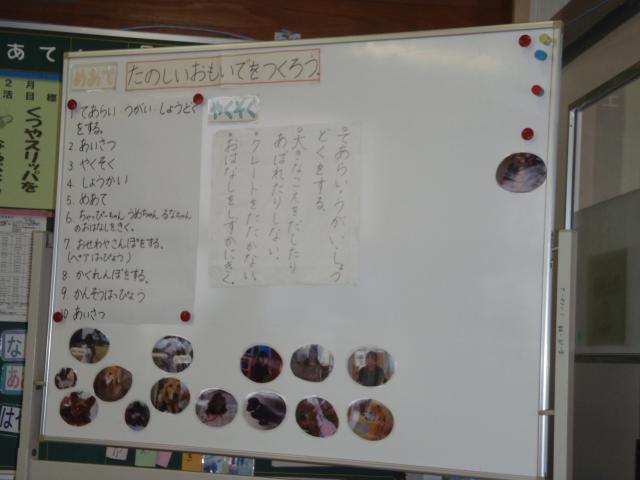 めあて
たのしいおもいでをつくろう
1 てあらい うがい しょうどく
をする。
2 あいさつ
3 やくそく
4 しょうかい
5 めあて
6 ちゃっぴーちゃん うめちゃん るなちゃん
のおはなしをきく。
7 おせわやさんぽをする。
(ペアはっぴょう)
8 かくれんぼをする。
9 かんそうはっぴょう
10 あいさつ
やくそく
てあらい・うがい・しょう
どくをする。
大きなこえをだしたり
あばれたりしない。
クレートをたたかない。
おはなしをしずかにきく。
あて
2月
活目
くつやスリッパを